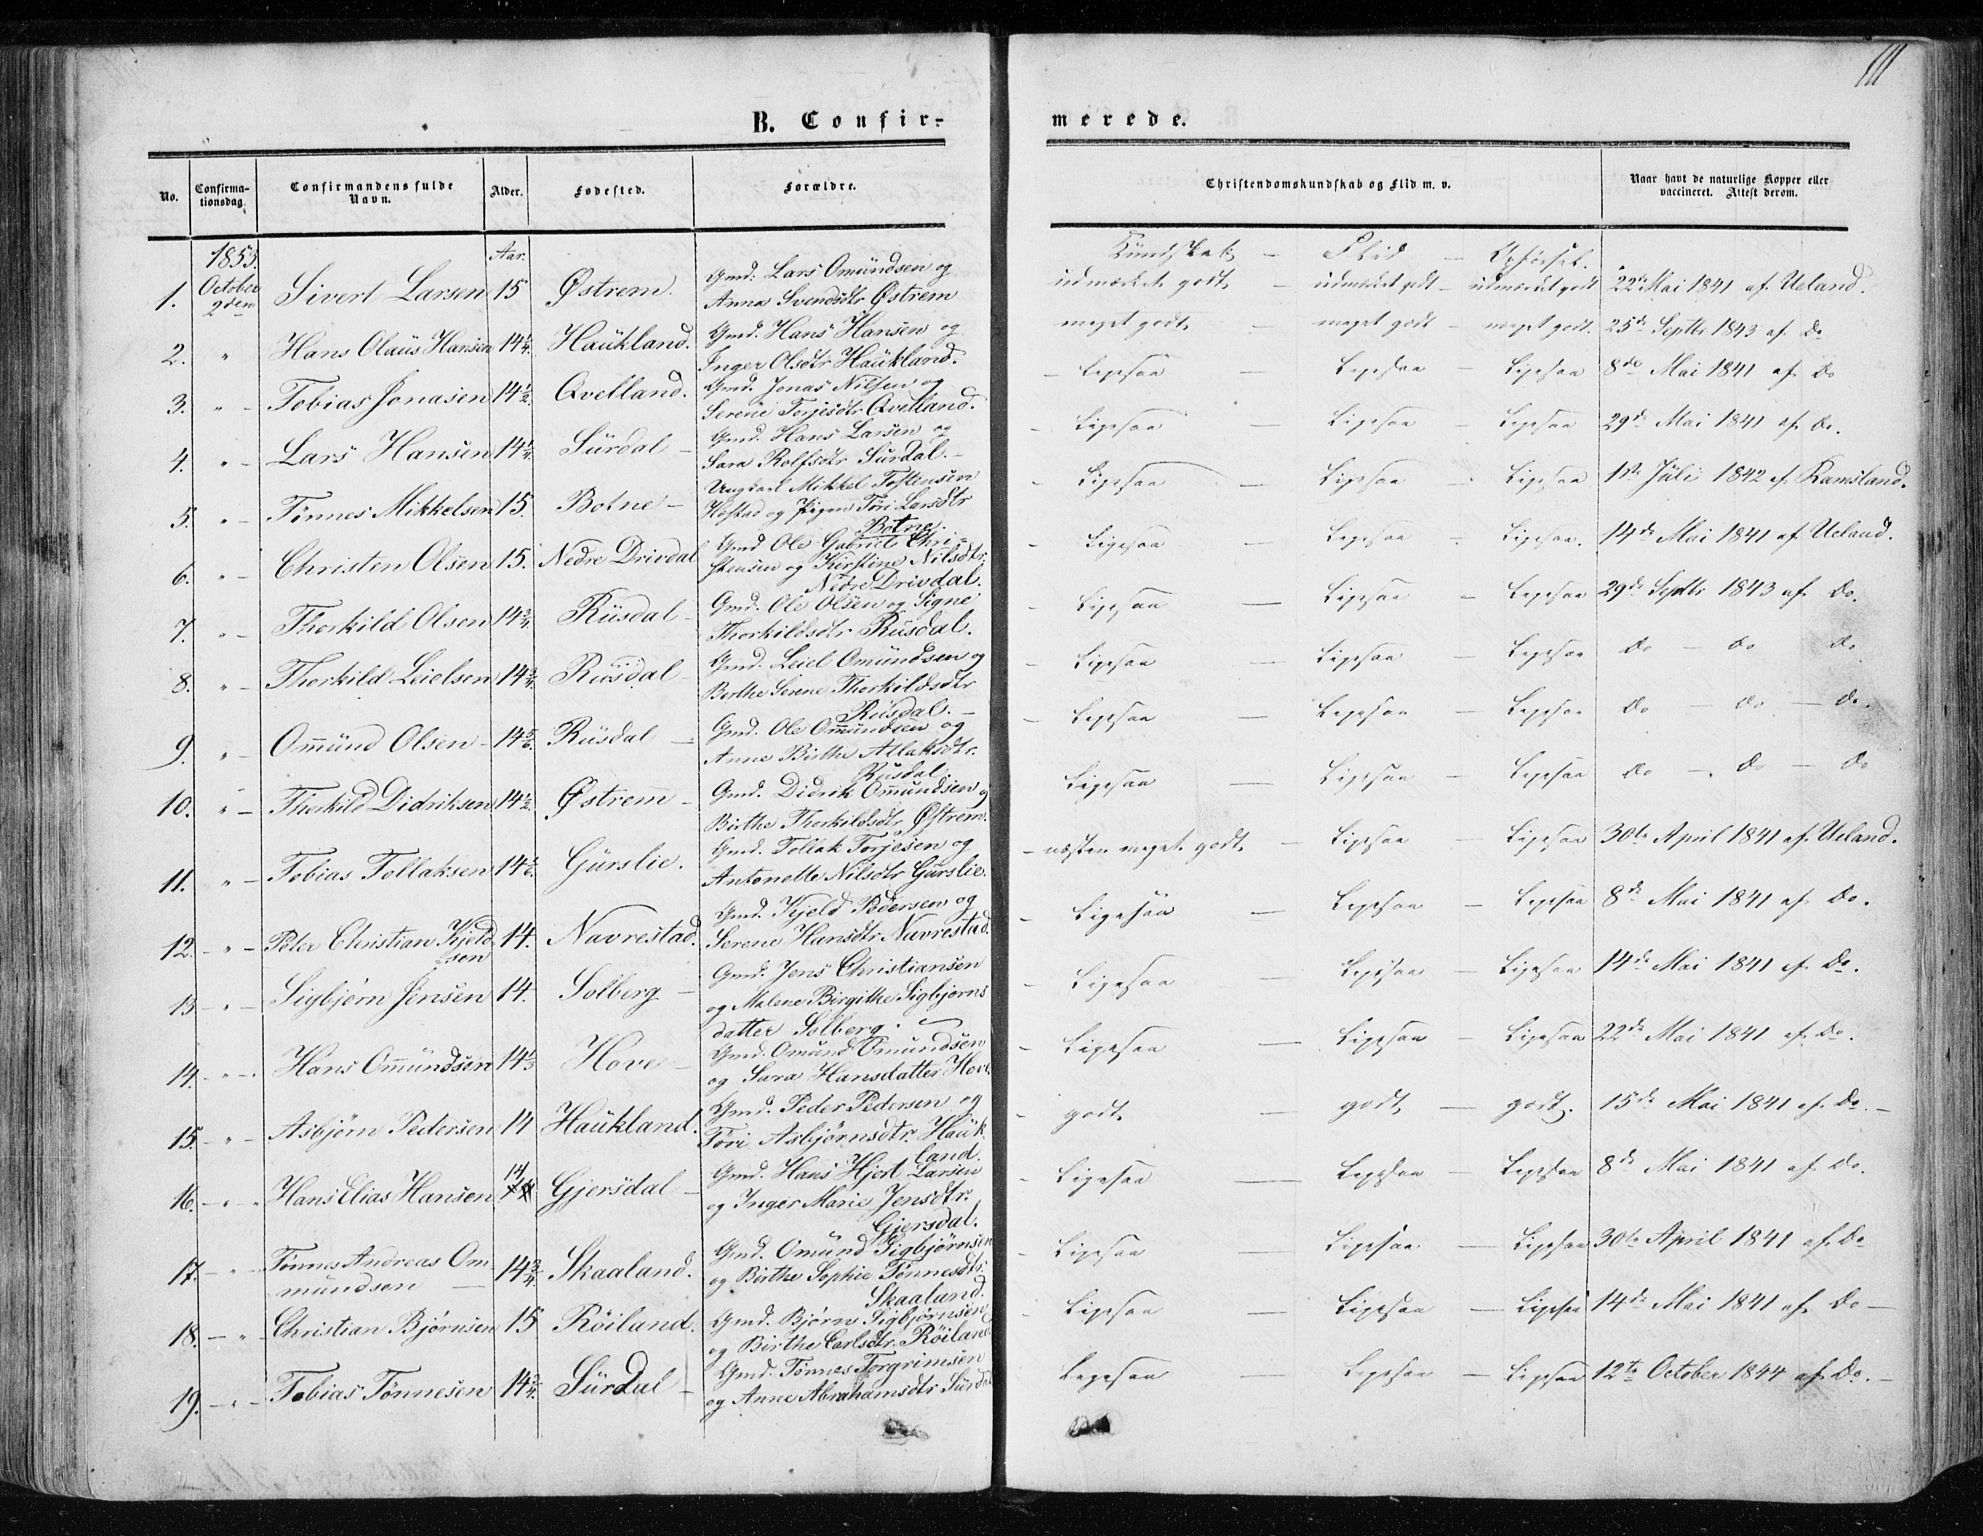 111
B. Confirmerede.
No. Confirmationsdag. Confirmandens fulde Navn. Alder. Fødested. Forældre. Christendomskundskab og Flid m. v. Naar havt de naturlige Kopper eller vaccineret. Attest derom.
1853. Aar. Kundskab – Flid – Opførsel.
1. October 2den Sivert Larsen 15 Østrem. Gmd. Lars Omundsen og Anna Svendsdtr Østrem udmærket godt – udmærket godt – udmærket godt 22de Mai 1841 af Ueland.
2. " Hans Olaus Hansen 14 1/4. Haukland. Gmd. Hans Hansen og Inger Olsdtr Haukland. meget godt – meget godt – meget godt. 25de Septbr 1843 af Do
3. " – Tobias Jonasen 14 1/2. Qvelland. Gmd. Jonas Nilsen og Serene Torjesdtr Qvelland. – Ligesaa – Ligesaa – Ligesaa 8de Mai 1841 af Do
4. " – Lars Hansen 14 1/4. Surdal – Gmd. Hans Larsen og Sara Rolfsdtr Surdal. – – Ligesaa – Ligesaa – Ligesaa 29de Mai 1841 af Do.
5. " – Tønnes Mikkelsen 15. Botne – Ungkarl Mikkel Tostensen Hestad og Pigen Tøri Larsdtr Botne. – Ligesaa – Ligesaa – Ligesaa 1ste Juli 1842 af Ramsland.
6. " – Christen Olsen 15. Nedre Drivdal Gmd Ole Gabriel Christensen og Kirstine Nilsdtr. Nedre Drivdal. – Ligesaa – Ligesaa – Ligesaa. 14de Mai 1841 af Ueland.
7. " – Thorkild Olsen 14 3/4. Rusdal – Gmd. Ole Olsen og Signe Thorkildsdtr Rusdal. – Ligesaa – Ligesaa – Ligesaa 29de Septbr 1843 af Do.
8. " – Thorkild Leielsen 14 3/4. Rusdal – Gmd. Leiel Omundsen og Berthe Serene Thorkildsdtr Rusdal. – – Ligesaa – Ligesaa – Ligesaa Do – Do Do
9. " – Omund Olsen – 14 5/6. Rusdal – Gmd. Ole Omundsen og Anne Birthe Atlaksdtr. Rusdal – Ligesaa – Ligesaa – Ligesaa Do – Do – Do.
10. " – Thorkild Didriksen 14 1/2. Østrem – Gmd. Didrik Omundsen og Birthe Thorkildsdtr Østrem. – Ligesaa – Ligesaa – Ligesaa Do – Do – Do
11. " – Tobias Tollaksen 14 1/6. Gurslie. Gmd. Tollak Torjesen og Antonette Nilsdtr Gurslie. – næsten meget godt – Ligesaa – Ligesaa 30te April 1841 af Ueland.
12. – " – Peter Christian Kjeldsen 14. Navrestad. Gmd. Kjeld Pedersen og Serene Hansdtr Navrestad. – Ligesaa – Ligesaa – Ligesaa 8de Mai 1841 af Do.
13 – " – Sigbjørn Jensen 14. Solberg – Gmd. Jens Christiansen og Malene Birgithe Sigbjørnsdatter Solberg. – Ligesaa – Ligesaa – Ligesaa 14de Mai 1841 af Do.
14. – " – Hans Omundsen 14 1/3 Hove – Gmd. Omund Omundsen og Sara Hansdatter Hove. – Ligesaa – Ligesaa – Ligesaa 22de Mai 1841 af Do.
15. – " – Asbjørn Pedersen 14 Haukland. Gmd. Peder Pedersen og Tøri Asbjørnsdtr. Haukland. – godt – godt – godt. 15de Mai 1841 af Do. –
16. – " – Hans Elias Hansen 14 Gjersdal – Gmd. Hans Hjert Larsen og Inger Marie Jensdtr. Gjersdal. – Ligesaa – Ligesaa – Ligesaa 8de Mai 1841 af Do.
17. – " – Tønnes Andreas Ommundsen – 14 3/4. Skaaland. Gmd. Omund Sigbjørnsen og Birthe Sophie Tønnesdtr. Skaaland. – Ligesaa – Ligesaa – Ligesaa 30te April 1841 af Do
18. – " – Christian Bjørnsen 15 Røiland. Gmd. Bjørn Sigbjørnsen og Birthe Carlsdtr. Røiland – Ligesaa – Ligesaa – Ligesaa 14de Mai 1841 af Do –
19. – " – Tobias Tønnesen 14 3/4. Surdal – Gmd. Tønnes Torgrimsen og Anne Abrahamsdtr Surdal Ligesaa – Ligesaa – Ligesaa 12te October 1844 af Do. –